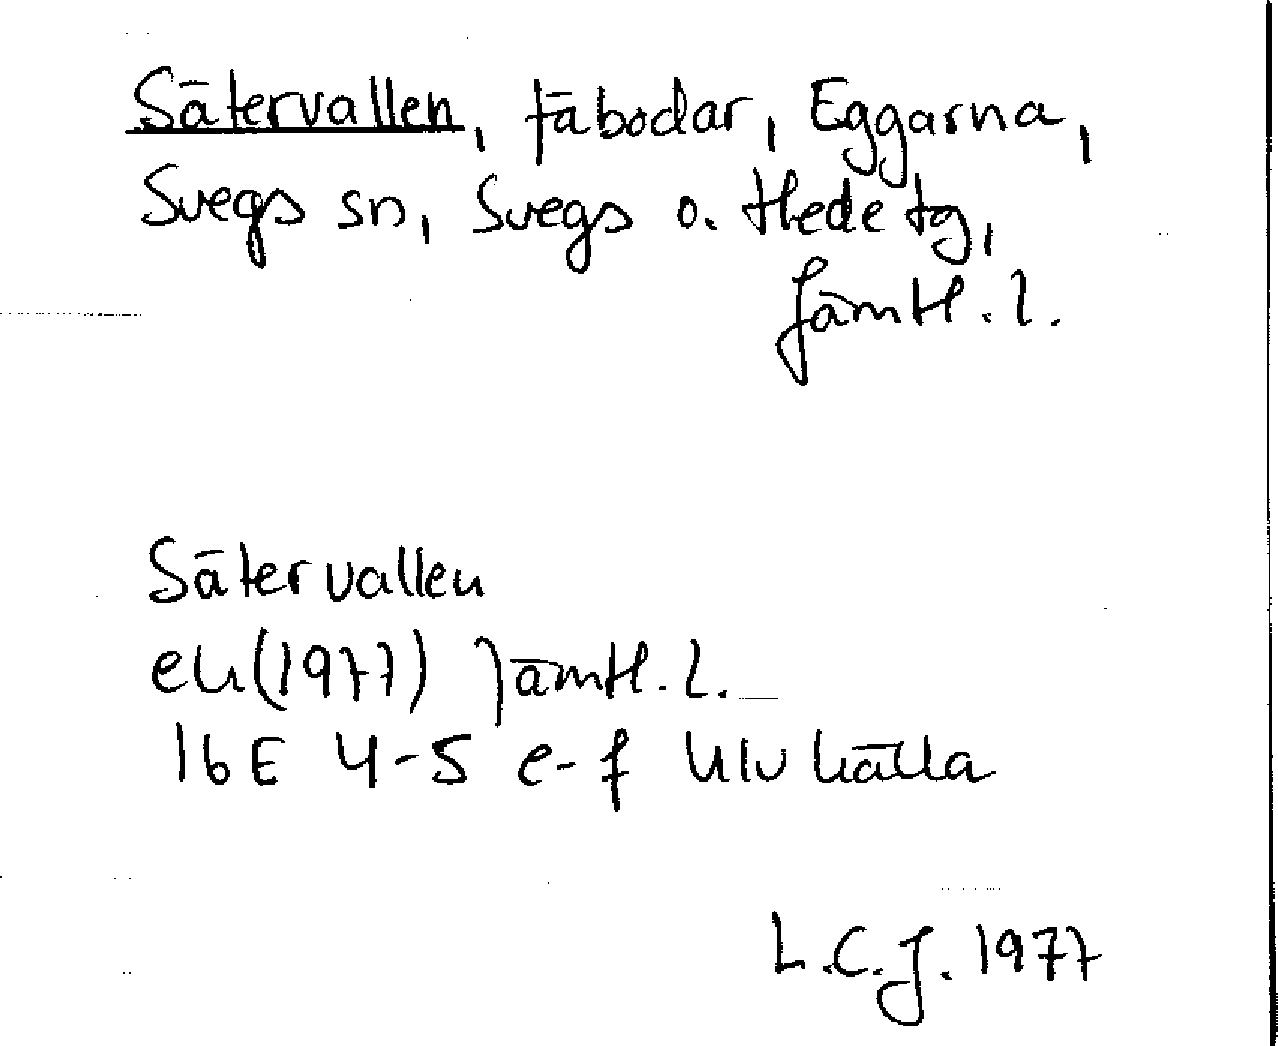 Sätervallen, fäbodar, Eggarna,
Svegs sn, Svegs o. Hede tg,
Jämtl. l.
Sätervallen
ek (1977) Jämtl. l.
16E 4-5 e-f Ulvkälla
L.C.J. 1977